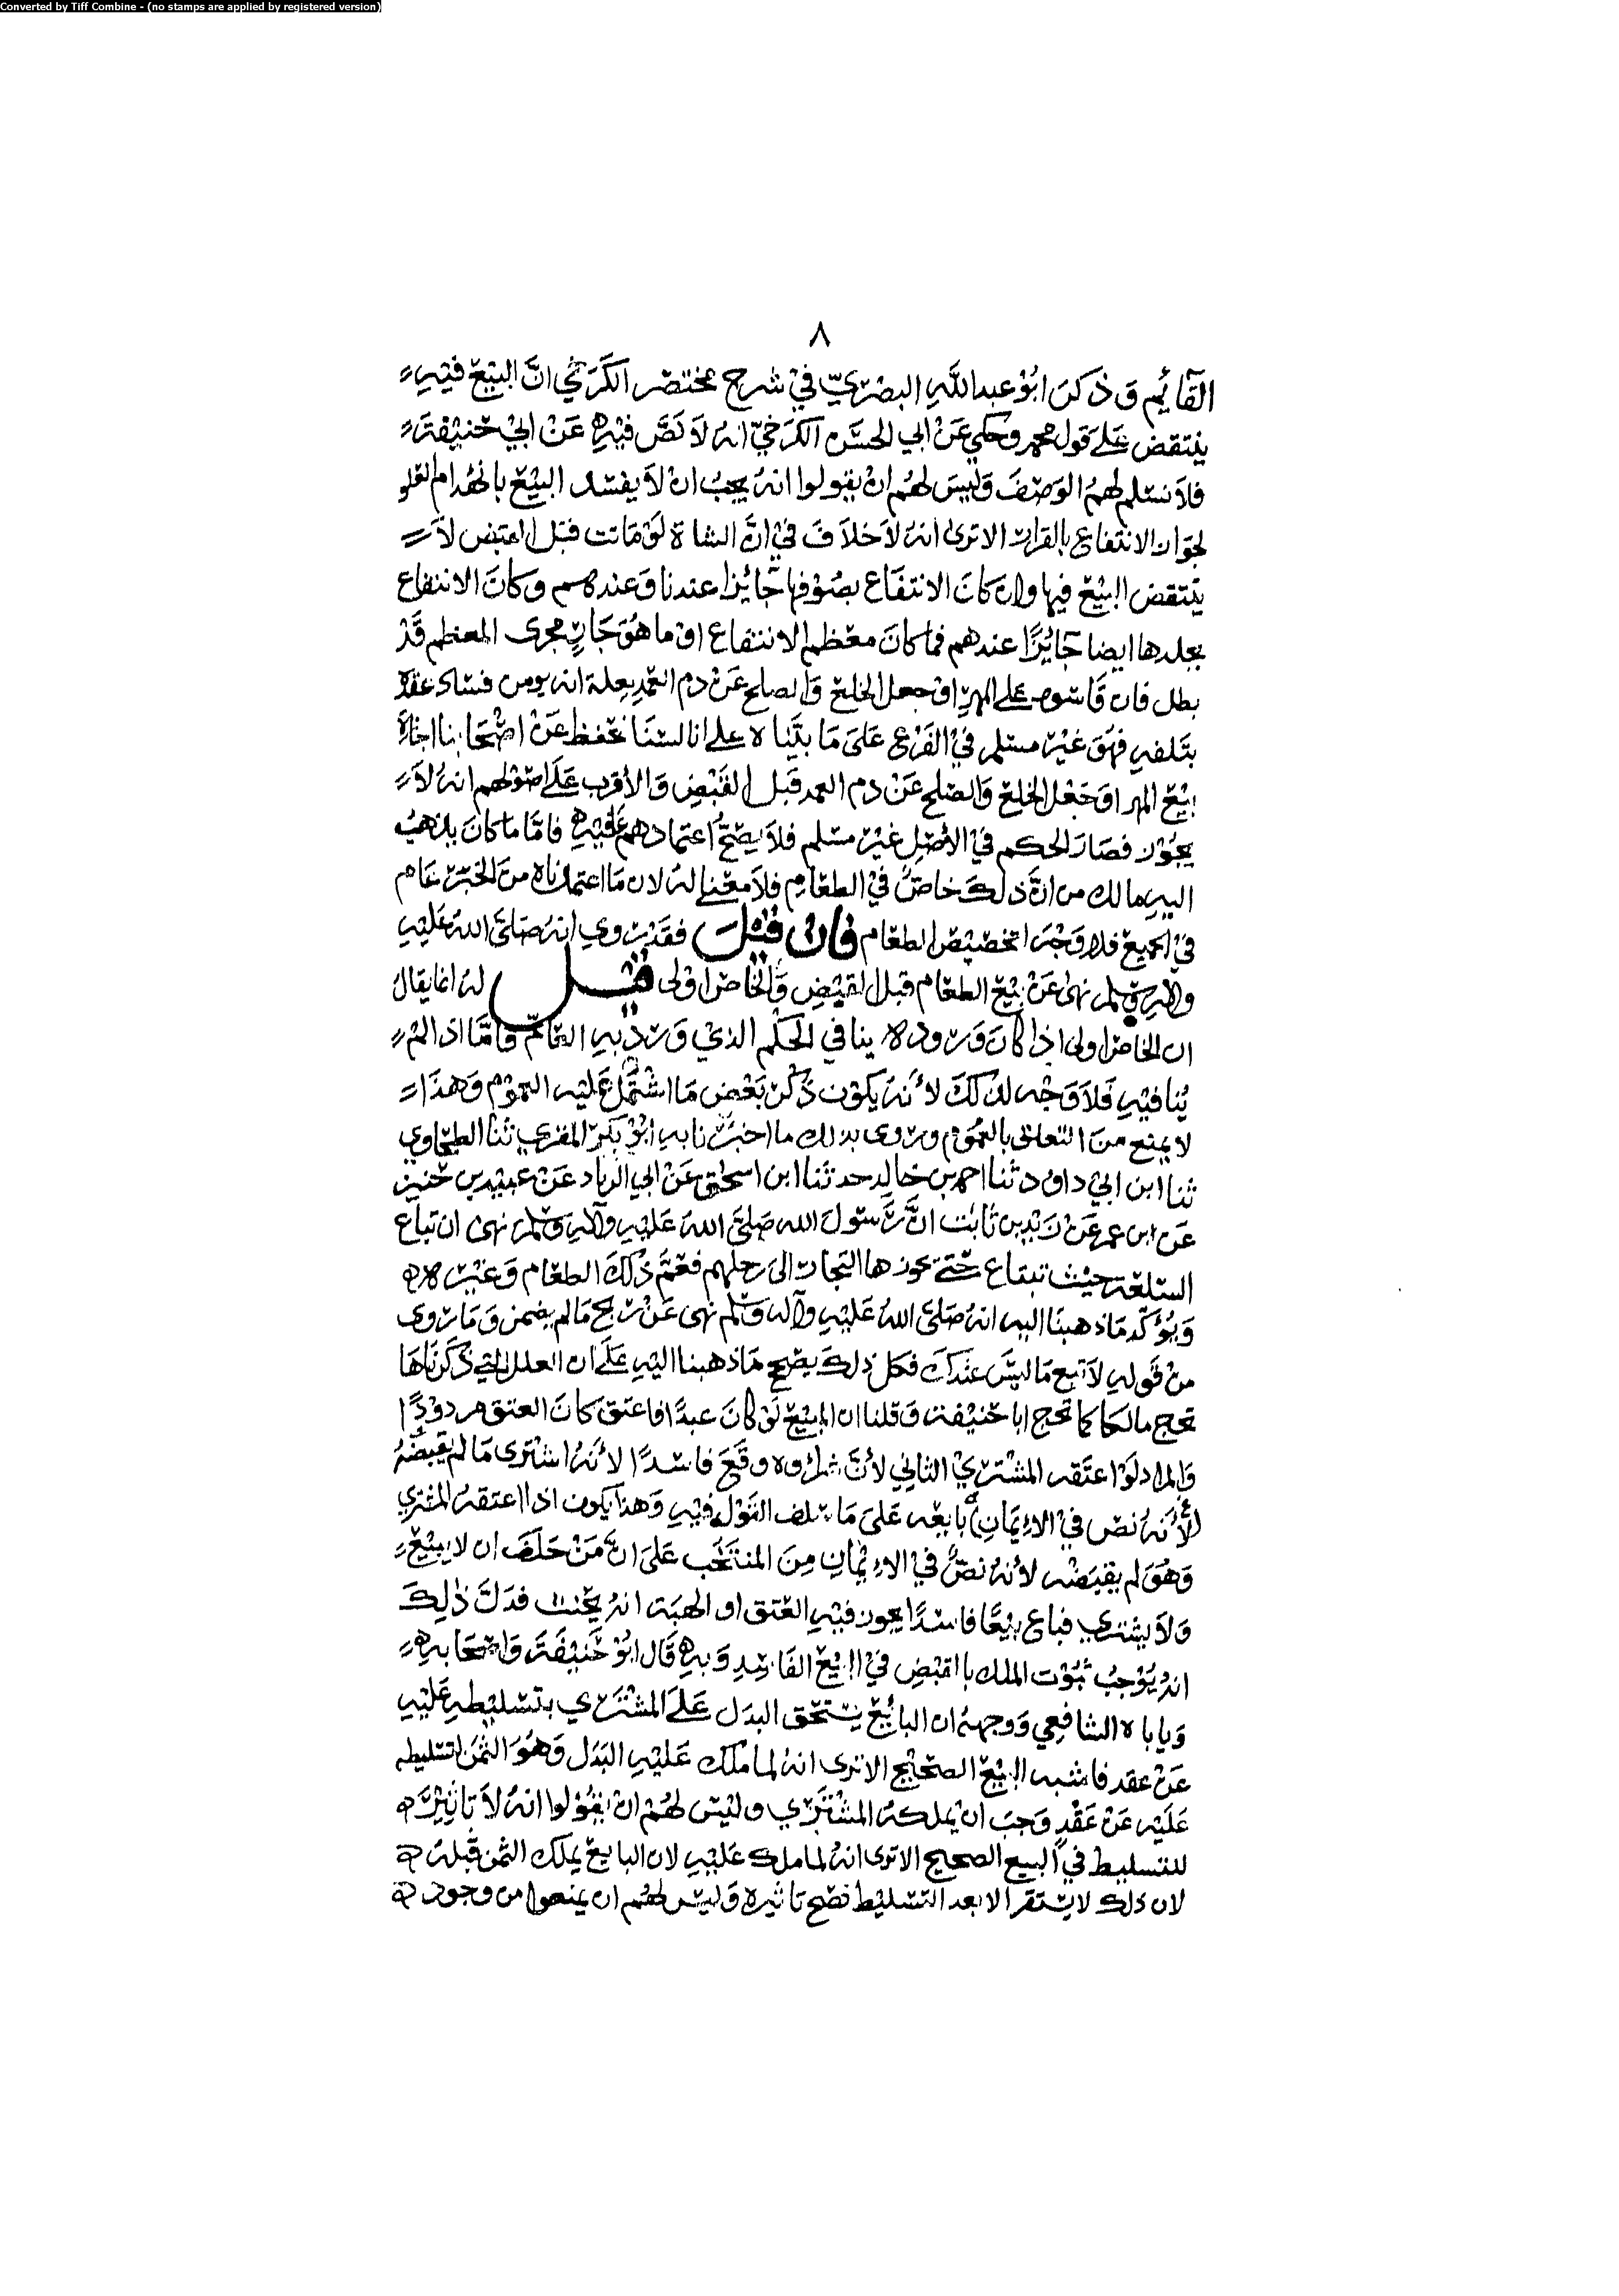 Converted by Tiff Combine - (no stamps are applied by registered version)
٨
القآئِم وَذكرَ ابُوْ عبد اللَّهِ البصْرِيّ فيْ شرح مختصر الكَرَخي انَّ البيْعَ فيْهِ
ينتقض عَلَے قول محمد وحكي عَنْ ابي الحسَن الكرَخيّ انهُ لاَ نصَّ فيْهِ عَنْ ابيْ حَنيْفَة
فلاَ نسَلم لهمُ الوَصْفَ وَليسَ لهُم انْ يقولوا انهُ يجبُ ان لاَ يفسُد البيْع بانْهدام العلو
لجوَاز الانتفاع بالقرار الا ترى انهُ لاَ خلاَفَ فيْ انَّ الشاة لوْ مَاتت قبْل القبض لاَ
ينتقض البيْع فيها وان كانَ الانتفَاع بصُوْفها جَائزا عندنا وَعندهم وكانَ الانتفاع
بجلدها ايضا جَائِزًا عندهم فما كانَ معْظم الانتفاع اوْ ما هُوَ جَارٍ مجرى المعظم قَدْ
بطل فان قاسوه على المهرِ اوْ جعل الخلع وَالصلح عَنْ دم العَمْدِ بعِلة انه يومن فسَاد عقده
بتَلفهِ فهُوَ غَيْر مسَلم في الفَرْع عَلىَ مَا بيَّناه على انا لسْنَا نحْفظ عَنْ اصْحَابنا اجَازَة
بيْع المهر اوْ جَعْل الخلع وَالصّلح عَنْ دم العمد قَبل القَبْضِ وَالأقرب عَلَى اصُوْلهم انهُ لاَ
يجُوْز فصَارَ الحكم في الأصْلِ غيْر مسَلم فلاَ يصحُّ اعتمادهم عَليْهِ فامَّا ما كانَ يذهَبُ
اليهِ مالك من انَّ ذلكَ خاصٌّ في الطعَامِ فلاَ معْنى لهُ لان مَا اعتمدناه منَ الخبَر عَام
في الجميع فلا وَجْهَ لتخصيْص الطعَام فان قيْلَ فقدْ روي انهُ صَلىَّ اللهُ عَليْهِ
وآلهِ وسَلم نهىَ عَنْ بَيْع الطعَام قبل القبْضِ وَالخَاصّ اولى قيْل لهُ انما يقال
ان الخاصّ اولى اذا كانَ وَروده ينافي الحكْم الذيْ وَرَدَ بهِ العَامّ فامَّا اذا لمْ
يُنافيْهِ فَلاَ وَجْه لذلكَ لأنهُ يكوْن ذكرَ بَعْض مَا اشْتَمَل عَليْه العمُوْم وَهذَا
لا يمنع منَ التعلق بالعمُوْم وروى بذلك ما اخبَرنا بهِ ابُوْ بكرِ المقري ثنا الطحَاوي
ثنا ابن ابيْ داوْد ثنا احمد بن خالد حدثنا ابن اسحٰق عَنْ ابي الزناد عَنْ عبيْد بن حُنين
عَن ابن عمر عَنْ زيْد بن ثابت انَّ رَسُوْلَ الله صَلىَّ اللهُ عَليْهِ وآلهِ وَسَلم نهى ان تباع
السّلعَة حيْث تبتاع حَتىَّ يحوزها التجار الى رحَالهم فعَمَّ ذٰلكَ الطعَام وَغيْره
وَيُؤكّد مَا ذهبنَا اليه انهُ صَلىَّ اللهُ عَليْهِ وآله وَسَلم نهى عَنْ ربح مَا لم يضمن وَمَا روى
منْ قَولهِ لاَ تبع مَا ليْسَ عنْدَكَ فكل ذلكَ يصَحح مَا ذهبنا اليْهِ عَلَى ان العلل التي ذكَرناها
تحجّ مالكا كما تحج ابا حَنيْفة وَقلنا ان المبيْع لوْ كانَ عبدًا فاعتق كانَ العتق مردوْدًا
وَالمراد لوْ اعتَقه المشْتريْ الثاني لأنَّ شراؤه وقَعَ فاسدًا لأنهُ اشترى مَا لم يقبضْهُ
لأنهُ نصّ في الاِيمَانِ بابعْه عَلىَ مَا سَلف القوْل فيْهِ وَهذا يكون اذا اعتقهُ المشتري
وَهُوَ لم يقبضْه لأنهُ نصٌّ في الاِيْمَانِ مِنَ المنتخَب عَلىَ انَّ مَنْ حَلفَ ان لا يبيْع
وَلاَ يشتري فباع بيْعًا فاسدًا يجوز فيْهِ العتق او الهبَة انهُ يحْنث فدَلَّ ذٰلكَ
انهُ يُوْجبُ ثبُوْت الملك بالقبْض في البيْع الفاسِدِ وَبهِ قَالَ ابُوْ حَنيْفَة وَاصْحَابه
وَيأباه الشافعي وَوجههُ ان البائِع يسْتحق البدَل عَلىَ المشْتَري بتسْليْطهِ عَليْهِ
عَنْ عقد فاشبه البيْع الصحيْح الا ترى انهُ لما ملك عَليْهِ البَدَل وَهُوَ الثمَن لتسْليطه
عَليْه عَنْ عَقْدٍ وَجبَ انْ يملكهُ المشْتَري وليْسَ لهُمْ انْ يقُوْلوا انهُ لاَ تاثيْرَ
للتسليط في البيع الصحيح الا ترى انهُ لما ملك عليْهِ لان البايعَ يملك الثمن قَبلهُ
لان ذلك لا يسْتقر الا بعد التسْليْط فصَح تاثيره وَليْسَ لهُم ان يمنعوا من وجوْد